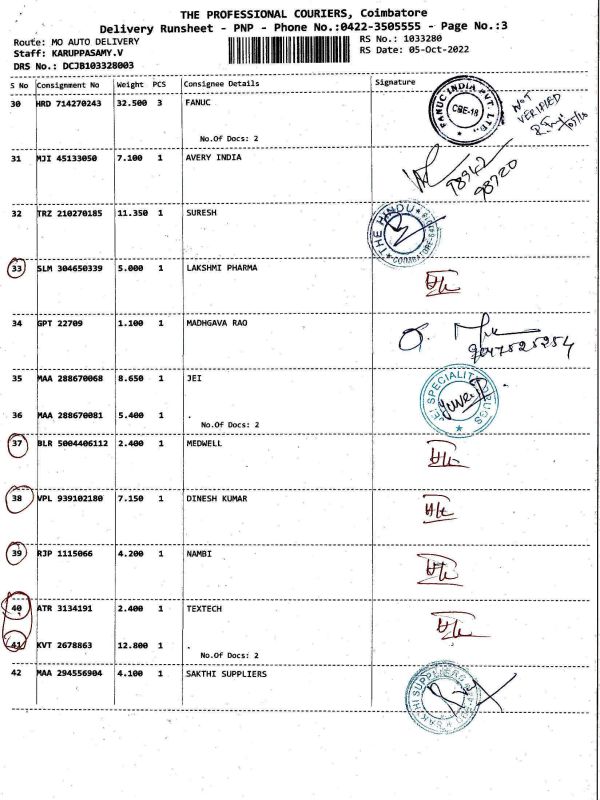 THE PROFESSIONAL COURIERS, Coimbatore
Delivery Runsheet - PNP - Phone No.:0422-3505555 - Page No.:3
Route: MO AUTO DELIVERY RS No.: 1033280
Staff: KARUPPASAMY.V RS Date: 05-Oct-2022
DRS No.: DCJB103328003
S No Consignment No Weight PCS Consignee Details Signature
30 HRD 714270243 32.500 3 FANUC
FANUC INDIA PVT. LTD.
CBE-18
NOT
VERIFIED
No.Of Docs: 2
31 MJI 45133050 7.100 1 AVERY INDIA
98942
98720
32 TRZ 210270185 11.350 1 SURESH
THE HINDU
COIMBATORE
33 SLM 304650339 5.000 1 LAKSHMI PHARMA
34 GPT 22709 1.100 1 MADHGAVA RAO
9047525254
35 MAA 288670068 8.650 1 JEI
JEI SPECIALITY DRUGS
36 MAA 288670081 5.400 1 .
No.Of Docs: 2
37 BLR 5004406112 2.400 1 MEDWELL
38 VPL 939102180 7.150 1 DINESH KUMAR
39 RJP 1115066 4.200 1 NAMBI
40 ATR 3134191 2.400 1 TEXTECH
41 KVT 2678863 12.800 1 .
No.Of Docs: 2
42 MAA 294556904 4.100 1 SAKTHI SUPPLIERS
SAKTHI SUPPLIERS